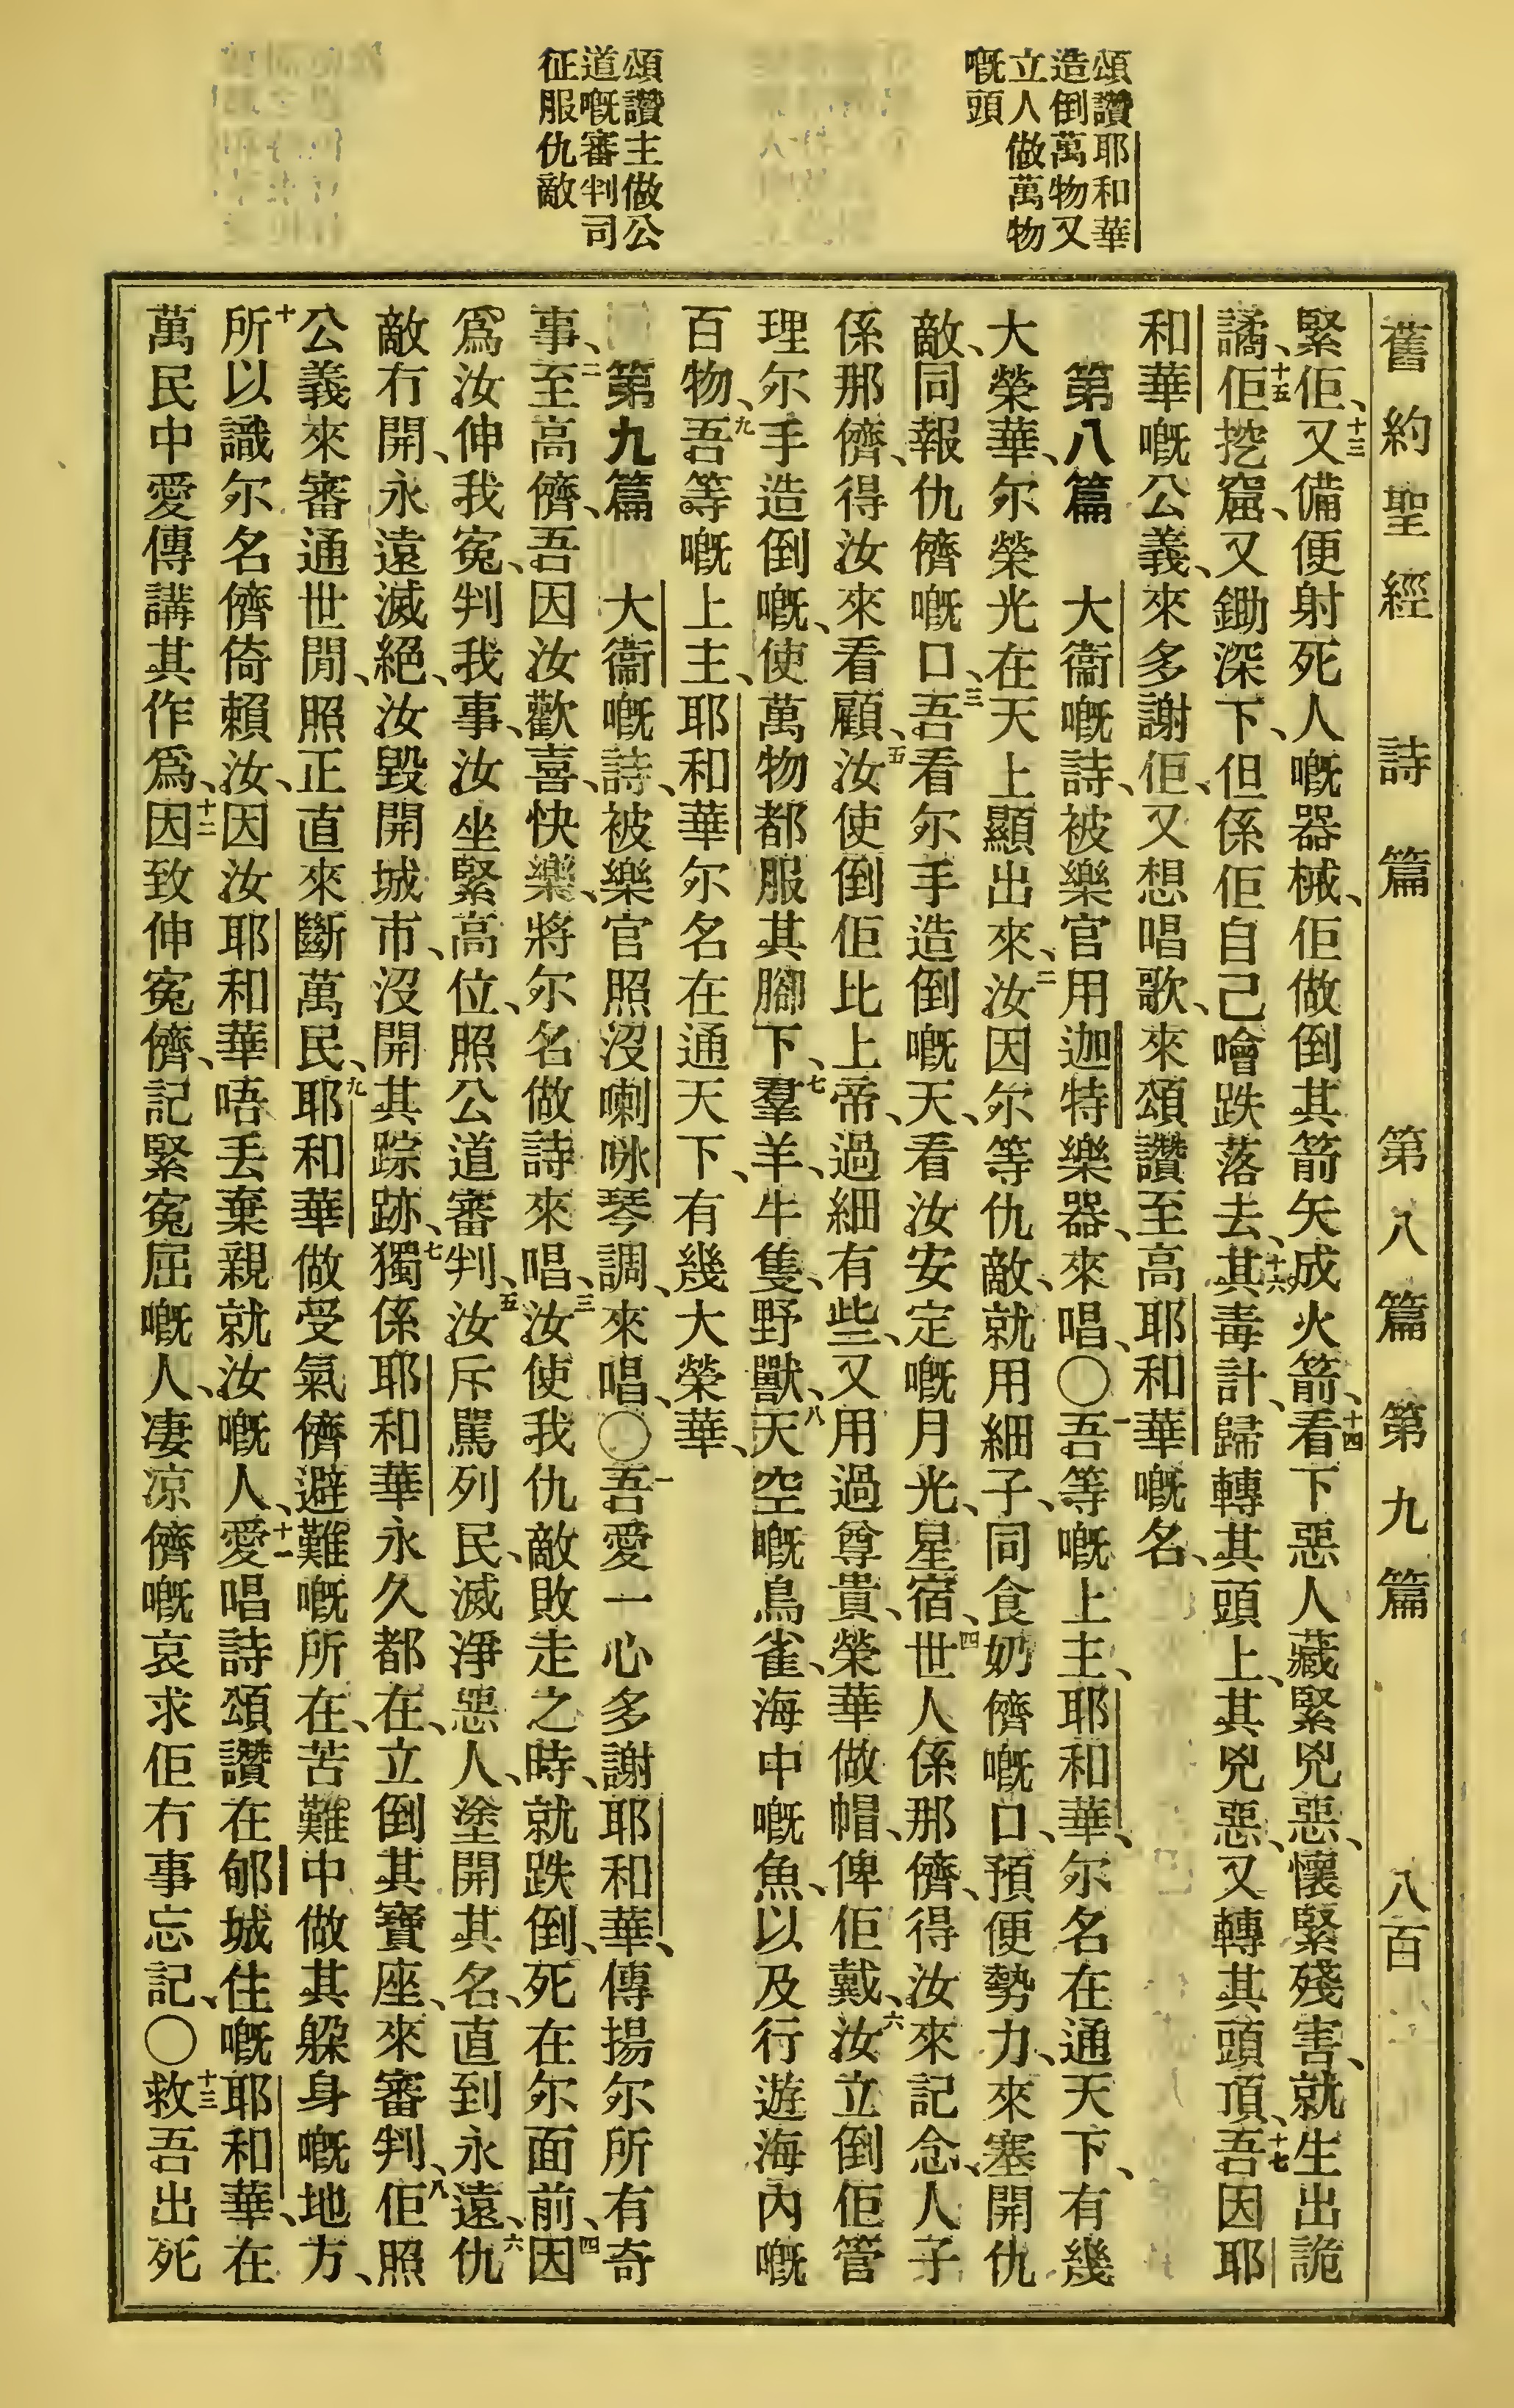 舊約聖經 詩篇 第八篇 第九篇 八百
頌讚耶和華
造倒萬物又
立人做萬物
嘅頭
頌讚主做公
道嘅審判司
征服仇敵
緊佢、十三又備便射死人嘅器械、佢做倒其箭矢成火箭、十四看下惡人藏緊兇惡、懷緊殘害、就生出詭
譎、十五佢挖窟、又鋤深下、但係佢自己噲跌落去、十六其毒計、歸轉其頭上、其兇惡、又轉其頭頂、十七吾因耶
和華嘅公義、來多謝佢、又想唱歌、來頌讚至高耶和華嘅名、
第八篇 大衞嘅詩、被樂官用迦特樂器、來唱、〇一吾等嘅上主、耶和華、尔名在通天下、有幾
大榮華、尔榮光在天上顯出來、二汝因尔等仇敵、就用細子、同食奶儕嘅口、預便勢力、來塞開仇
敵、同報仇儕嘅口、三吾看尔手造倒嘅天、看汝安定嘅月光、星宿、四世人係那儕、得汝來記念、人子
係那儕、得汝來看顧、五汝使倒佢比上帝、過細有些、又用過尊貴、榮華做帽、俾佢戴、六汝立倒佢管
理尔手造倒嘅、使萬物都服其腳下、七羣羊、牛隻、野獸、八天空嘅鳥雀、海中嘅魚、以及行遊海內嘅
百物、九吾等嘅上主、耶和華尔名在通天下、有幾大榮華、
第九篇 大衞嘅詩、被樂官照沒喇咏琴調、來唱、〇一吾愛一心多謝耶和華、傳揚尔所有奇
事、二至高儕、吾因汝歡喜、快樂、將尔名做詩來唱、三汝使我仇敵敗走之時、就跌倒、死在尔面前、四因
爲汝伸我寃、判我事、汝坐緊高位、照公道審判、五汝斥罵列民、滅淨惡人、塗開其名、直到永遠、六仇
敵冇開、永遠滅絕、汝毀開城市、沒開其踪跡、七獨係耶和華永久都在、立倒其寶座、來審判、八佢照
公義來審通世間、照正直來斷萬民、九耶和華做受氣儕避難嘅所在、苦難中做其躲身嘅地方、
十所以識尔名儕倚賴汝、因汝耶和華唔丢棄親就汝嘅人、十一愛唱詩頌讚在郇城住嘅耶和華、在
萬民中愛傳講其作爲、十二因致伸寃儕、記緊寃屈嘅人、凄凉儕嘅哀求佢冇事忘記、〇十三救吾出死